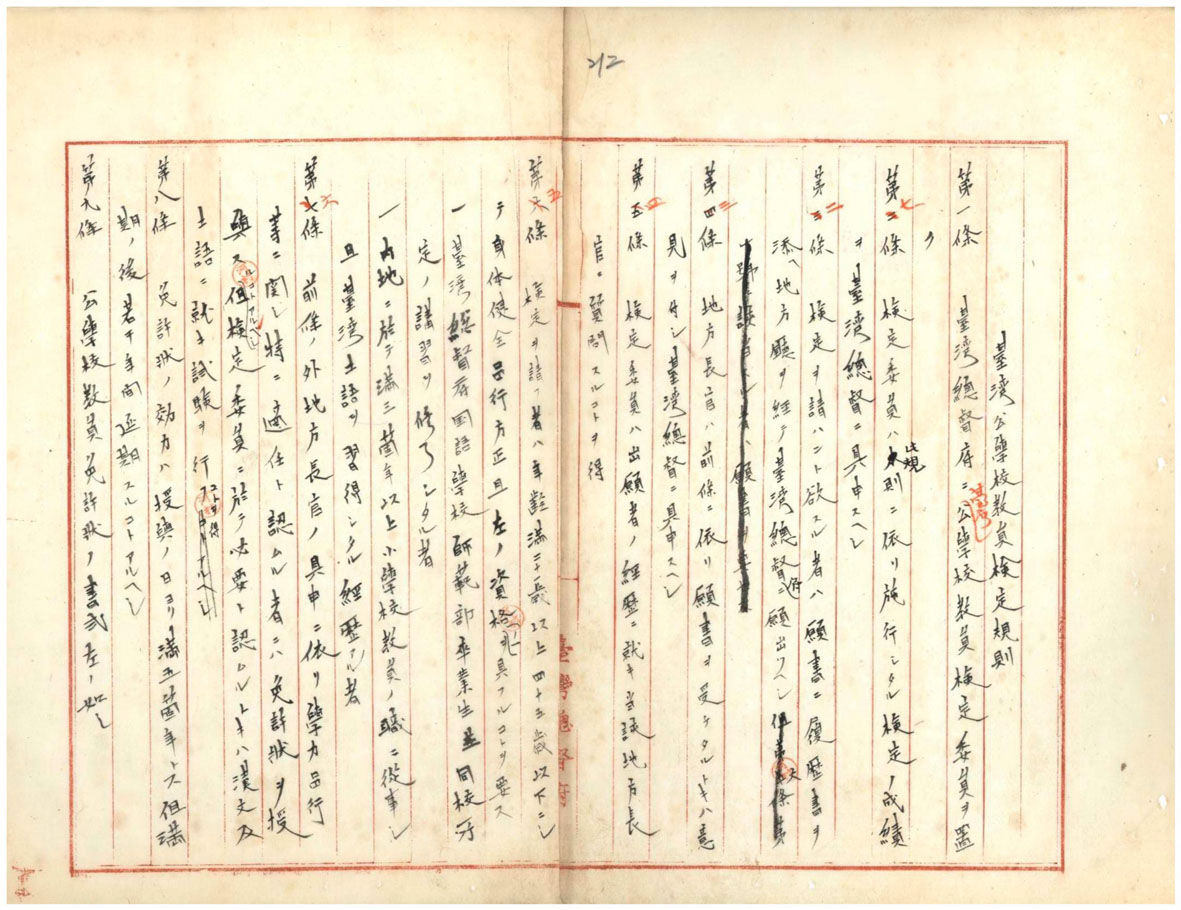 212
臺湾公學校教員検定規則
第一條 臺湾總督府ニ臺湾公學校教員検定委員ヲ置
ク
第七條 検定委員ハ此規則ニ依リ施行シタル検定ノ成績
ヲ臺湾總督ニ具申スヘシ
第二條 検定ヲ請ハント欲スル者ハ願書ニ履歴書ヲ
添ヘ地方廳ヲ経テ臺湾總督府ニ願出ツヘシ
第三條 地方長官ハ前條ニ依リ願書ヲ受ケタルトキハ意
見ヲ付シ臺湾總督ニ具申スヘシ
第四條 検定委員ハ出願者ノ經歴ニ就キ当該地方長
官ニ質問スルコトヲ得
第五條 検定ヲ請フ者ハ年齡満二十歳以上四十五歳以下ニシ
テ身体健全品行方正且左ノ資格ヲ具フルコトヲ要ス
一 臺湾總督府国語學校師範部卒業生並同校所
定ノ講習ヲ修了シタル者
一 内地ニ於テ満三箇年以上小學校教員ノ職ニ從事シ
且臺湾土語ヲ習得シタル經歴アル者
第六條 前條ノ外地方長官ノ具申ニ依リ學力品行
等ニ関シ特ニ適任ト認ムル者ニハ免許状ヲ授
與スルコトアルヘシ但検定委員ニ於テ必要ト認ムルトキハ漢文及
土語ニ就キ試験ヲ行フコトヲ得
第八條 免許状ノ効力ハ授與ノ日ヨリ満五箇年トス但満
期ノ後若干年間延期スルコトアルヘシ
第九條 公學校教員免許状ノ書式左ノ如シ
臺灣總督府